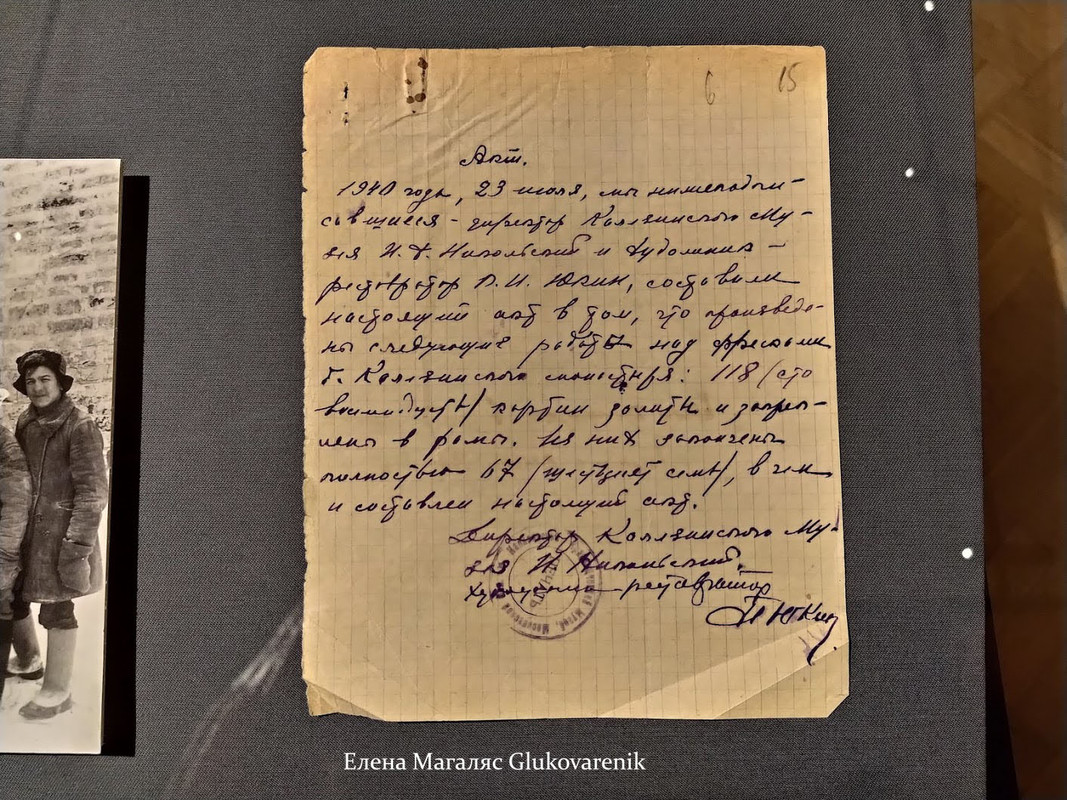 6 15
Акт.
1940 года, 23 июля, мы нижеподпи-
савшиеся - директор Калязинского Му-
зея И. Ф. Никольский и художник -
реставратор П. И. Юкин, составили
настоящий акт в том, что произведе-
ны следующие работы над фресками
б. Калязинского монастыря: 118 /сто
восемнадцать/ картин залиты и закреп-
лены в рамы. Из них закончены
полностью 67 /шестьдесят семь/, в чем
и составлен настоящий акт.
Директор Калязинского Му-
зея И Никольский.
Художник реставратор
П Юкин
Елена Магаляс Glukovarenik